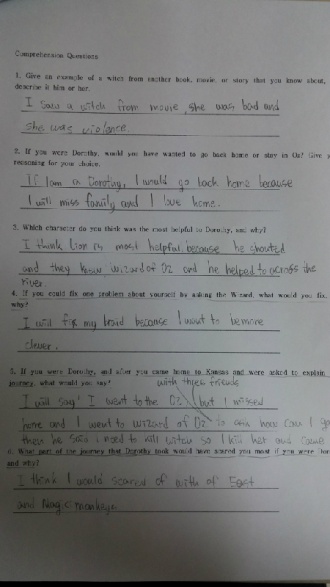 Comprehension Questions
1. Give an example of a witch from another book, movie, or story that you know about,
describe it him or her.
I saw a witch from movie, she was bad and
she was violance.
2. If you were Dorothy, would you have wanted to go back home or stay in Oz? Give
reasoning for your choice.
If I am a Dorothy, I would go back home because
I will miss family and I love home.
3. Which character do you think was the most helpful to Dorothy, and why?
I think lion is most helpful because he shouted
and they know wizard of Oz and he helped to across the
river.
4. If you could fix one problem about yourself by asking the Wizard, what would you fix,
why?
I will fix my braid because I want to be more
clever.
5. If you were Dorothy, and after you came home to Kansas and were asked to explain
journey, what would you say?
with three friends
I will say I went to the Oz but I missed
home and I went to wizard of Oz to how can I go
then he says I need to kill witch so I kill her and came
6. What part of the journey that Dorothy took would have scared you most if you were
and why?
I think I would scared of with of East
and Magic monkeys.